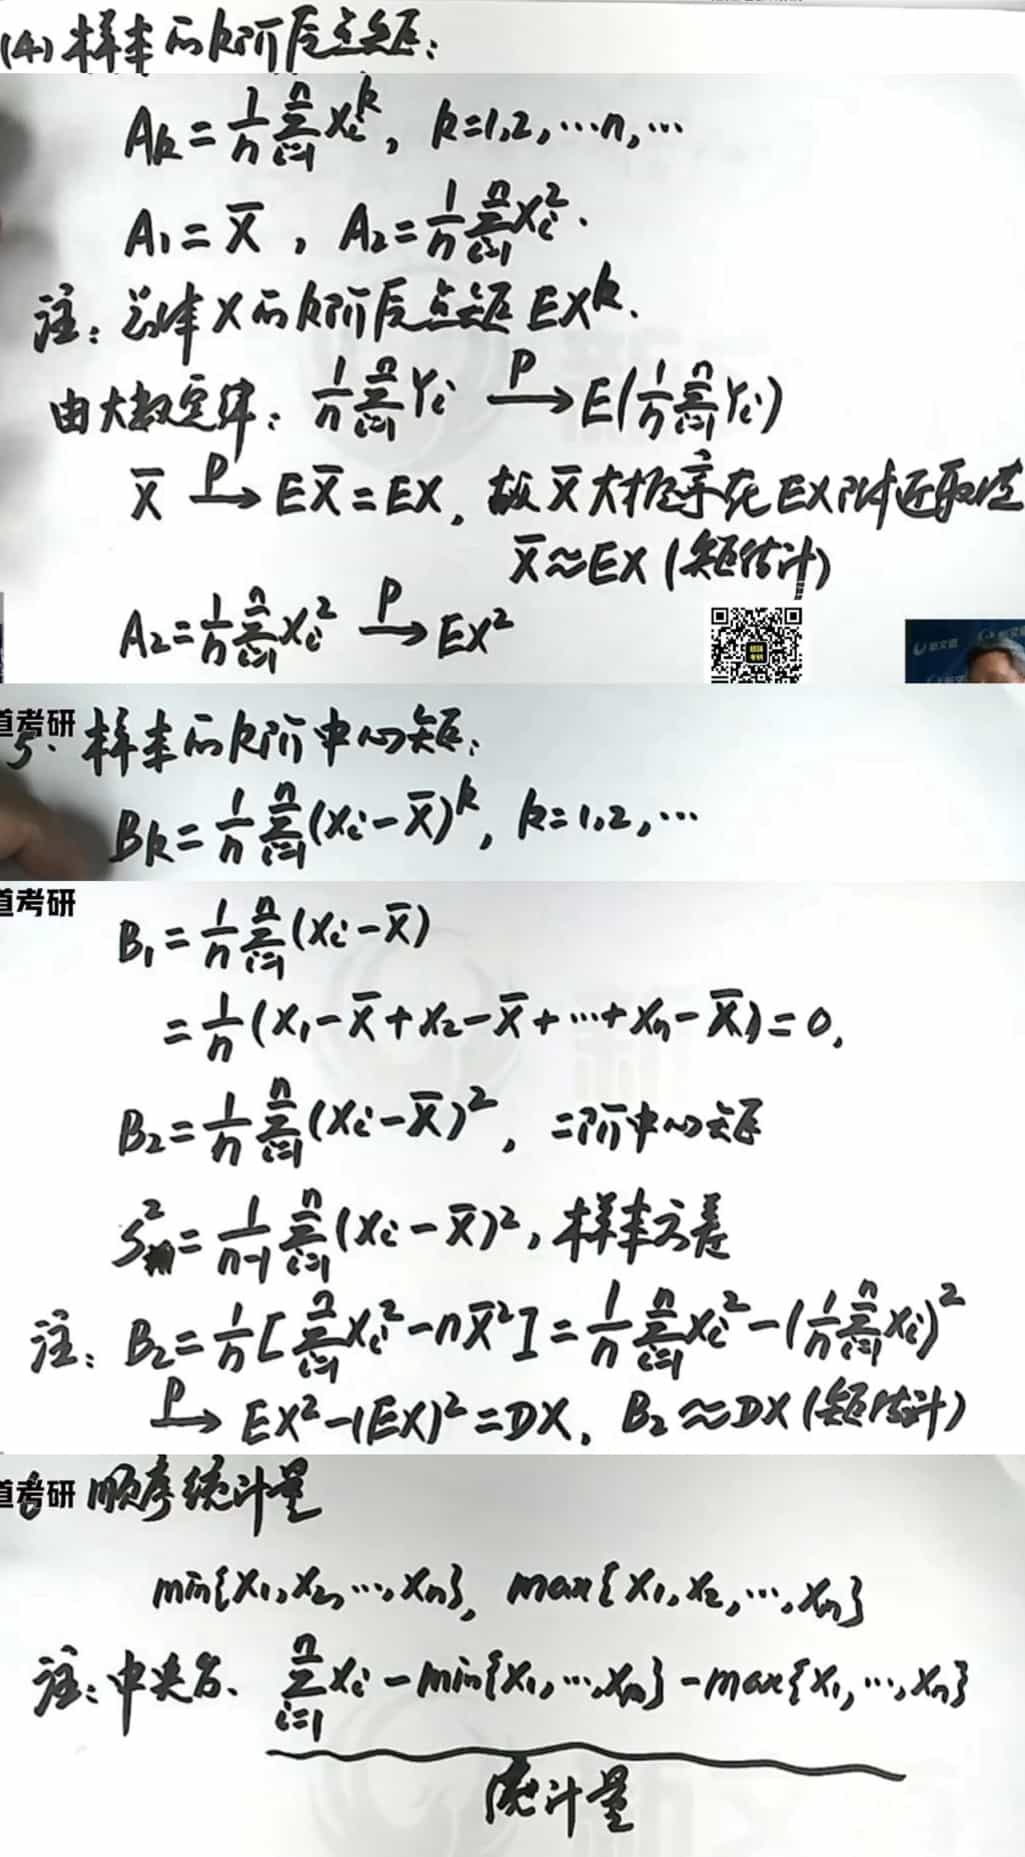 (4) 样本的k阶原点矩：
Ak = 1/n Σ(i=1→n) Xi^k, k=1,2,…n,…
A1 = X̄, A2 = 1/n Σ(i=1→n) Xi².
注：总体X的k阶原点矩 EX^k.
由大数定律：1/n Σ(i=1→n) Yi —P→ E(1/n Σ(i=1→n) Yi)
X̄ —P→ EX̄ = EX, 故X̄大概率在EX附近取值
X̄≈EX (矩估计)
A2 = 1/n Σ(i=1→n) Xi² —P→ EX²
新文道
道考研
5. 样本的k阶中心矩：
Bk = 1/n Σ(i=1→n) (Xi - X̄)^k, k=1,2,…
道考研
B1 = 1/n Σ(i=1→n) (Xi - X̄)
= 1/n (X1 - X̄ + X2 - X̄ + … + Xn - X̄) = 0,
B2 = 1/n Σ(i=1→n) (Xi - X̄)², 二阶中心矩
S² = 1/(n-1) Σ(i=1→n) (Xi - X̄)², 样本方差
注：B2 = 1/n [Σ(i=1→n) Xi² - nX̄²] = 1/n Σ(i=1→n) Xi² - (1/n Σ(i=1→n) Xi)²
—P→ EX² - (EX)² = DX, B2≈DX (矩估计)
道考研
6 顺序统计量
min{X1, X2, …, Xn}, max{X1, X2, …, Xn}
注：中央名. Σ(i=1→n) Xi - min{X1, …, Xn} - max{X1, …, Xn}
统计量